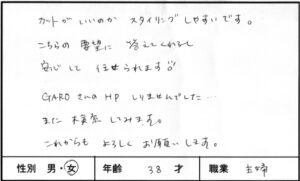 カットがいいのか スタイリングしやすいです。
こちらの要望に 答えてくれるし
安心して 任せられます
GARO さんの HP しりませんでした…
また 検索してみます。
これからも よろしく お願いします。
性別 男・女 年齢 38 才 職業 主婦